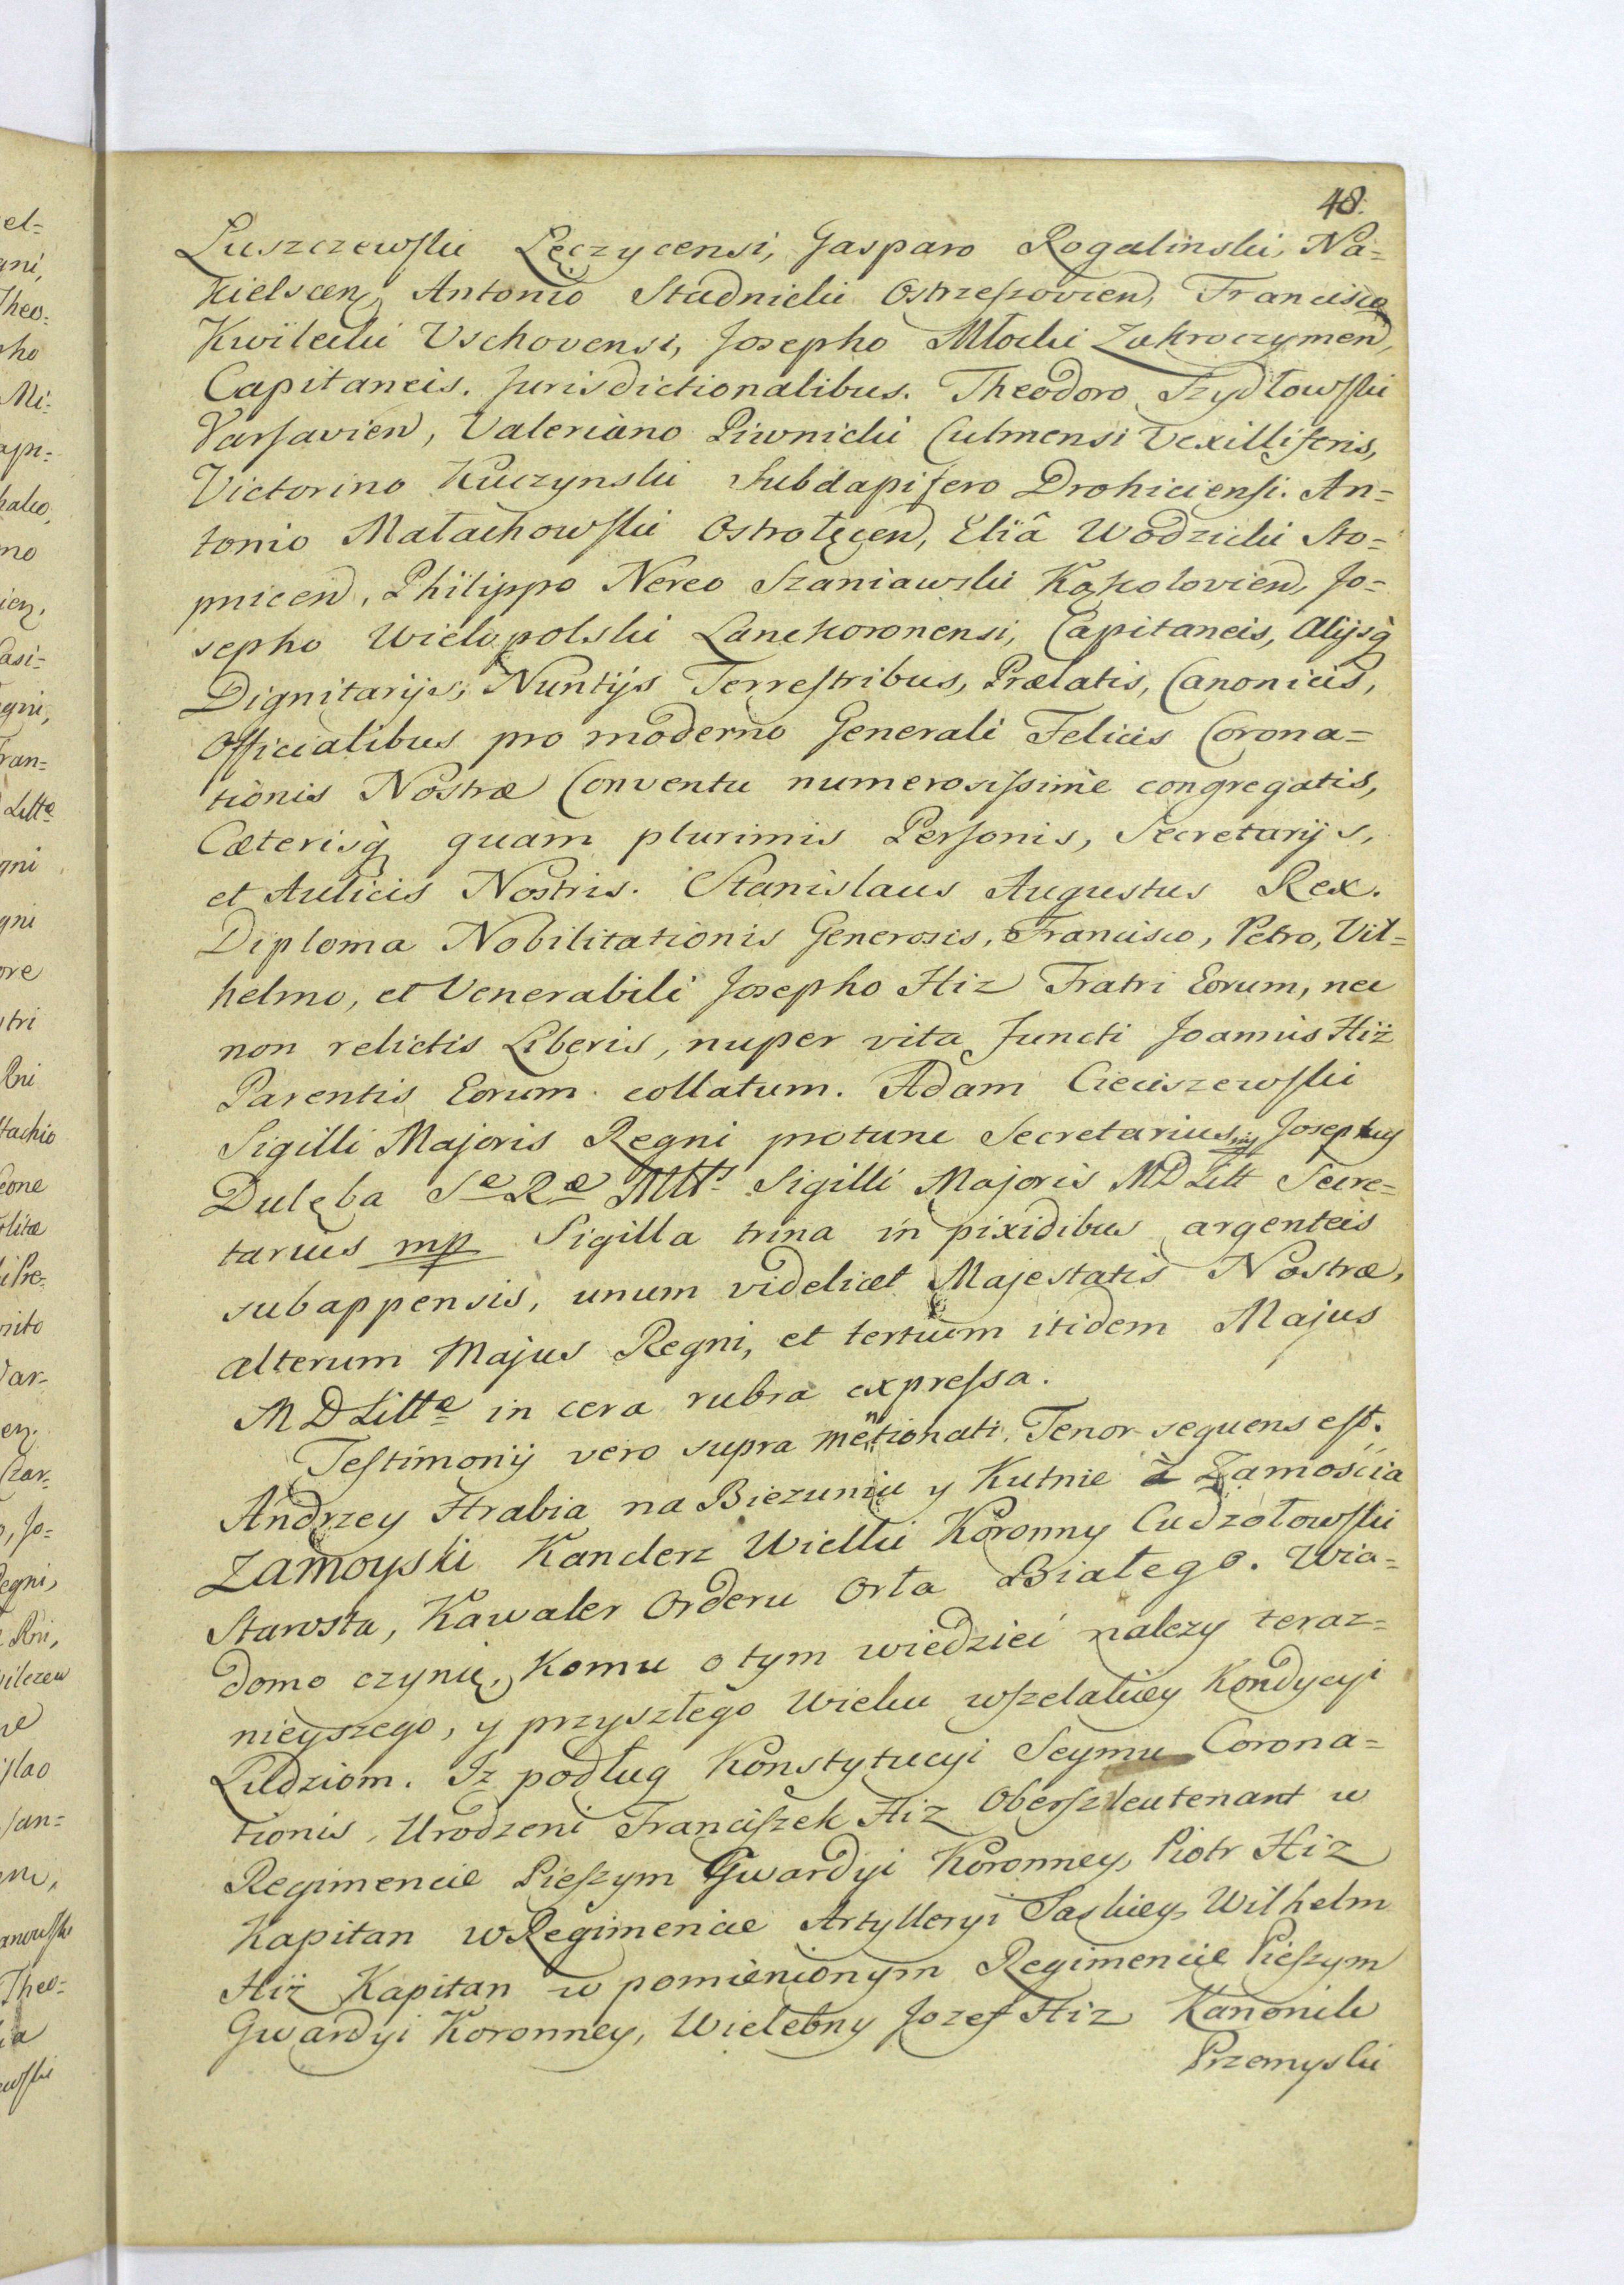 48.
Luszczewski Łęczycensi, Gasparo Rogalinski, Na=
kielscen, Antonio Stadnicki Ostrzeszovien, Francisco
Kwilecki Vschovensi, Josepho Młocki Zakroczymen,
Capitaneis. Jurisdictionalibus. Theodoro Szydłowski
Varsavien, Valeriano Piwnicki Culmensi Vexilliferis,
Victorino Kuczynski Subdapifero Drohiciensi. An=
tonio Małachowski Ostrołęcen, Eliâ Wodzicki Sto=
pnicen, Philippo Nereo Szaniawski Kąkolovien, Jo=
sepho Wielopolski Lanckoronensi, Capitaneis, Alijsq̀
Dignitarijs, Nuntijs Terrestribus, Prælatis, Canonicis,
Officialibus pro moderno Generali Felicis Corona=
tionis Nostræ Conventu numerosissimè congregatis,
Cæterisq̀ quam plurimis Personis, Secretarijs,
et Aulicis Nostris. Stanislaus Augustus Rex.
Diploma Nobilitationis Generosis, Francisco, Petro, Vil=
helmo, et Venerabili Josepho Hiz Fratri Eorum, nec
non relictis Liberis, nuper vita functi Joannis Hiż
Parentis Eorum collatum. Adam Cieciszewski
Sigilli Majoris Regni protunc Secretarius mp Josephus
Dulęba Sæ Ræ Mttis Sigilli Majoris MD Litt Secre=
tarius mp Sigilla trina in pixidibus argenteis
subappensis, unum videlicet Majestatis Nostræ,
alterum Majus Regni, et tertium itidem Majus
M D Littæ in cera rubra expressa.
Testimonij vero supra mentionati. Tenor sequens est.
Andrzey Hrabia na Biezuniu y Kutnie z Zamościa
Zamoyski Kanclerz Wielki Koronny Cudzołowski
Starosta, Kawaler Orderu Orła Białego. Wia=
domo czynię, komu o tym wiedzieć nalezy teraz=
nieyszego, y przyszłego Wieku wszelakiey Kondycyi
Ludziom. Iz podług Konstytucyi Seymu Corona=
tionis, Urodzeni Franciszek Hiz Oberszleutenant w
Regimencie Pieszym Gwardyi Koronney, Piotr Hiz
Kapitan w Regimencie Artylleryi Saskiey, Wilhelm
Hiż Kapitan w pomienionym Regimencie Pieszym
Gwardyi Koronney, Wielebny Jozef Hiz Kanonik
Przemyski